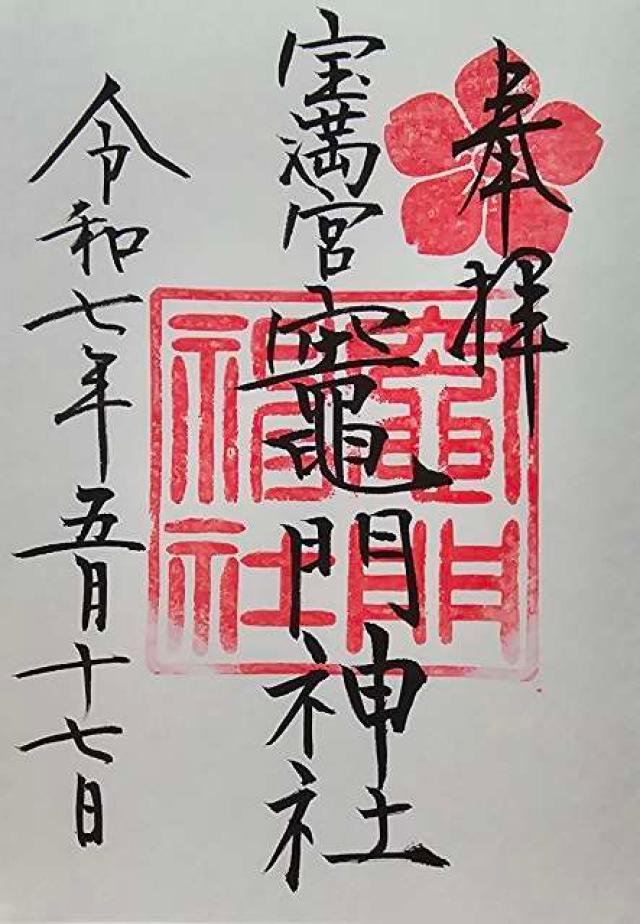 奉拝
宝満宮竈門神社
令和七年五月十七日
竈門神社